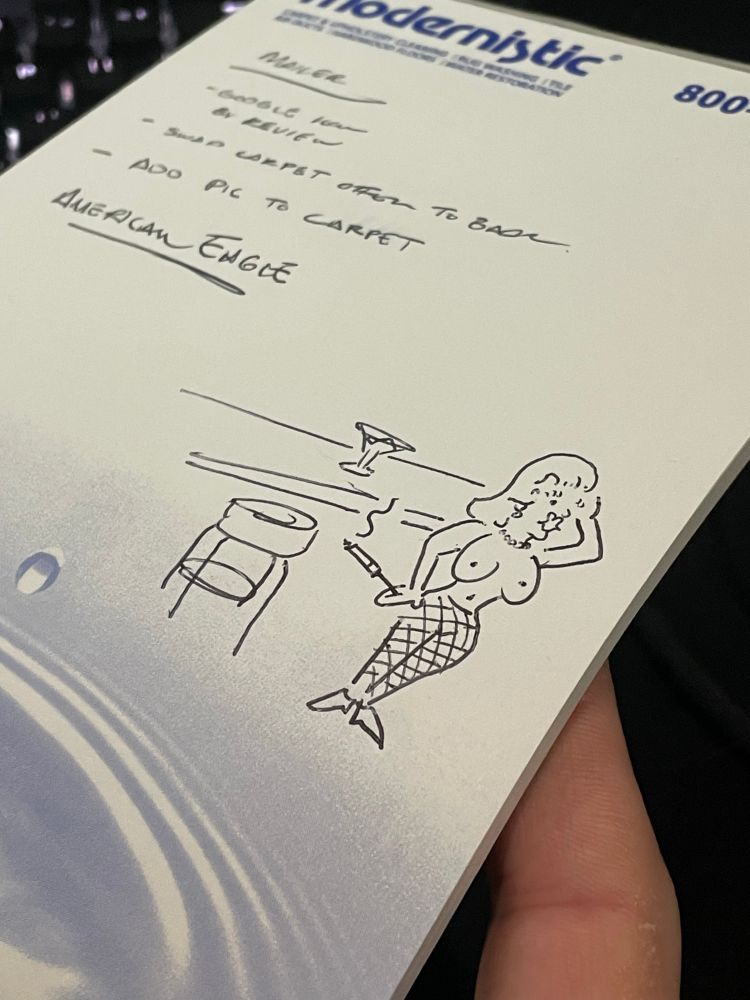 modernistic®
CARPET & UPHOLSTERY CLEANING | RUG WASHING | TILE
AIR DUCTS | HARDWOOD FLOORS | WATER RESTORATION
800-
MAILER
- GOOGLE ICON
BY REVIEW
- SWAP CARPET OFFER TO BACK
- ADD PIC TO CARPET
AMERICAN EAGLE